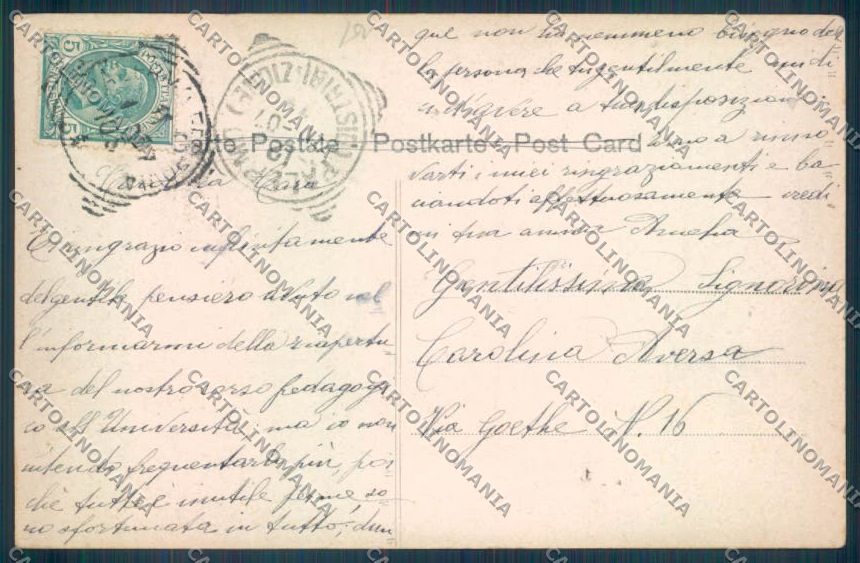 Carto Postale Postkarte Post Card
Carissima Cara
Ti ringrazio infinitamente
del gentile pensiero avuto nel
l'informarmi della riapertu-
ra del nostro corso pedagogi
co all'Università, ma io non
intendo frequentarlo più, poi
chè tutto è inutile per me so
no sfortunata in tutto, dun
que non ho nemmeno bisogno del
la persona che tu gentilmente
mettere a tua disposizione
a rinno
varti i miei ringraziamenti e ba
ciandoti affettuosamente credi
mi tua amica Amelia
Gentilissima Signorina
Carolina Aversa
Via Goethe N. 16
CARTOLINOMANIA